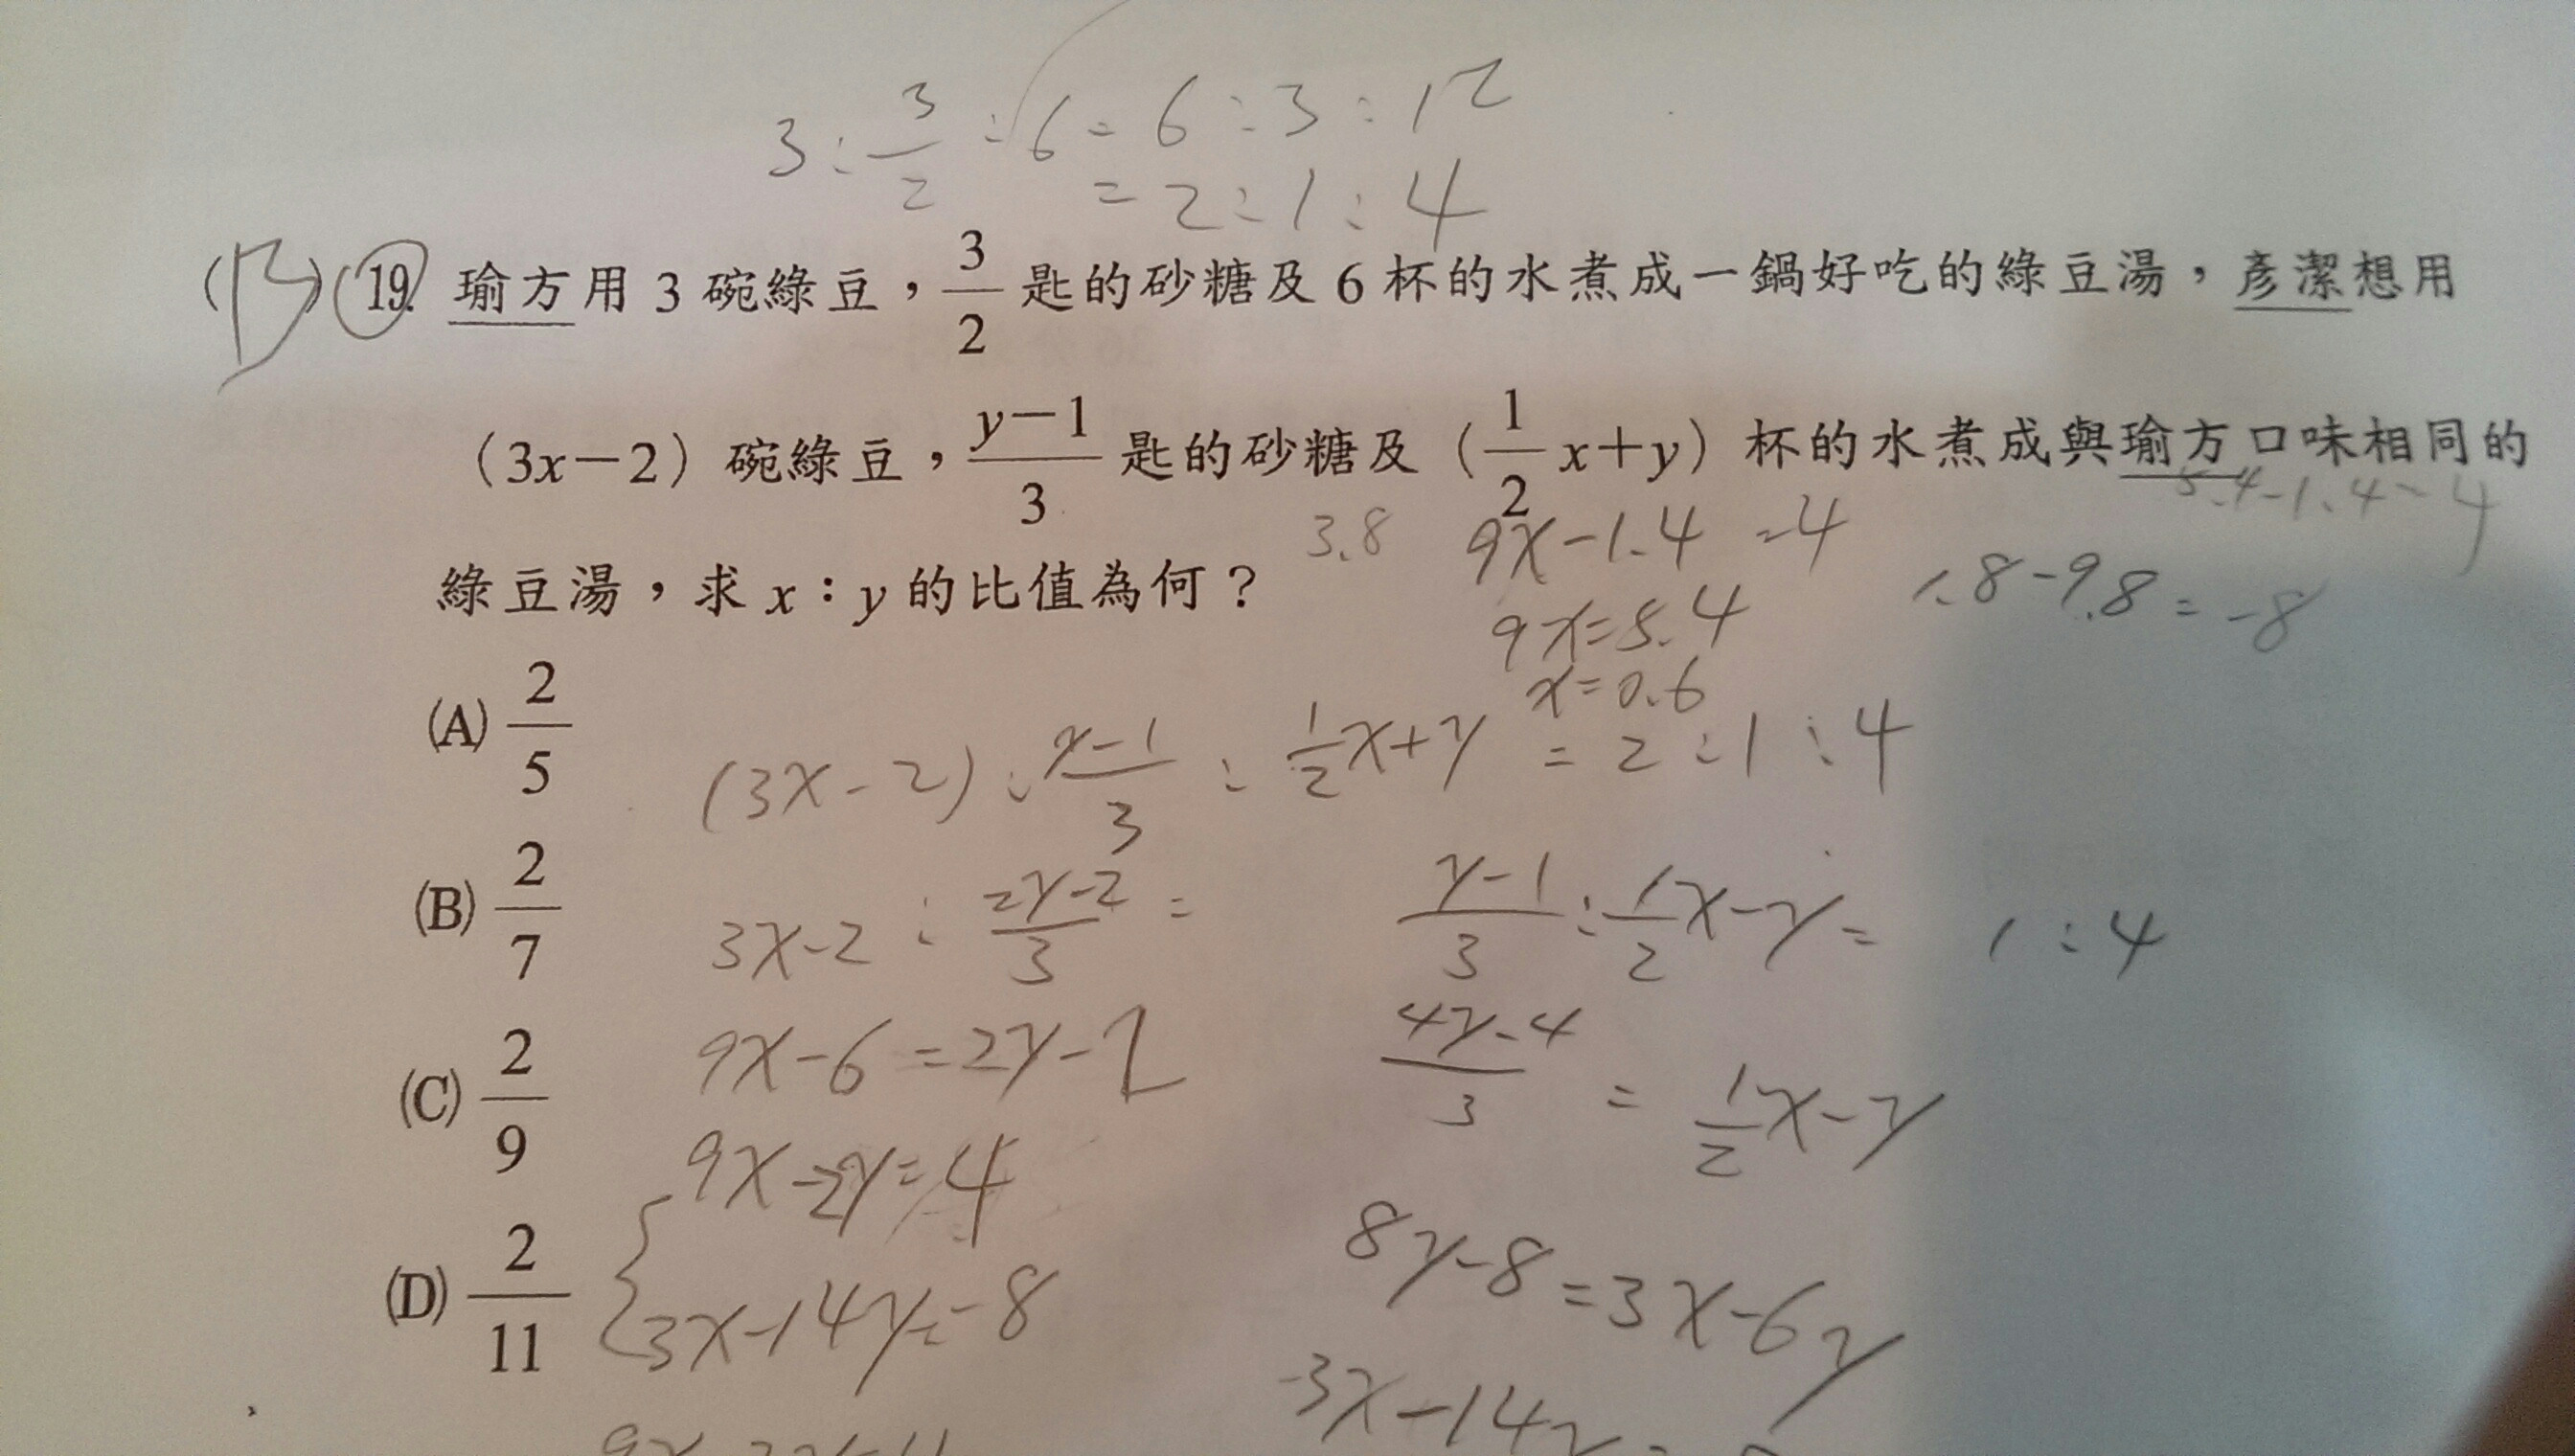 3 : 3/2 : 6 = 6 : 3 : 12
= 2 : 1 : 4
(B) 19. 瑜方用 3 碗綠豆，3/2 匙的砂糖及 6 杯的水煮成一鍋好吃的綠豆湯，彥潔想用
（3x－2）碗綠豆，y－1/3 匙的砂糖及（1/2 x＋y）杯的水煮成與瑜方口味相同的
綠豆湯，求 x：y 的比值為何？
3.8
9x－1.4 = 4
5.4－1.4 = 4
9x = 5.4
1.8－9.8 = －8
x = 0.6
(A) 2/5
(3x－2) : y－1/3 : 1/2 x+y = 2 : 1 : 4
(B) 2/7
3x－2 : 2y－2/3 =
y－1/3 : 1/2 x－y = 1 : 4
(C) 2/9
9x－6 = 2y－2
4y－4/3 = 1/2 x－y
9x－2y = 4
(D) 2/11
8y－8 = 3x－6y
3x－14y = －8
－3x－14y